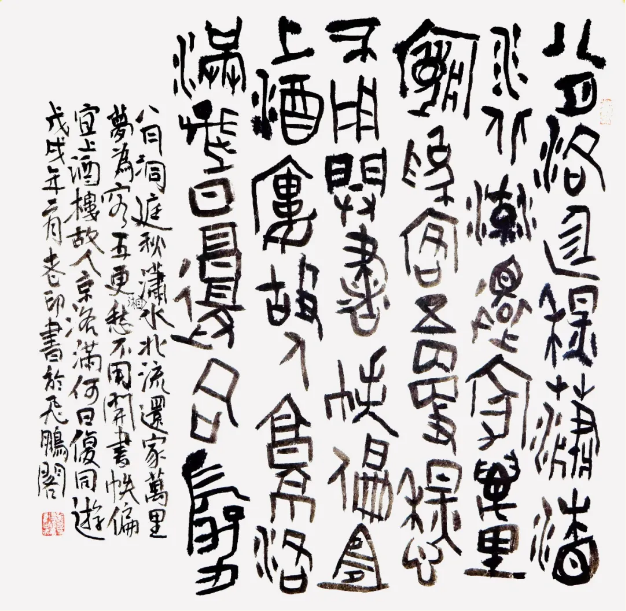 八月洞庭秋瀟湘
水北流還家萬里
夢為客五更愁
不用開書帙偏宜
上酒樓故人京洛
滿何日復同遊
八月洞庭秋瀟湘水北流還家萬里
夢為客五更愁不用開書帙偏
宜上酒樓故人京洛滿何日復同遊
戊戌年二月老印書於飛鵬閣